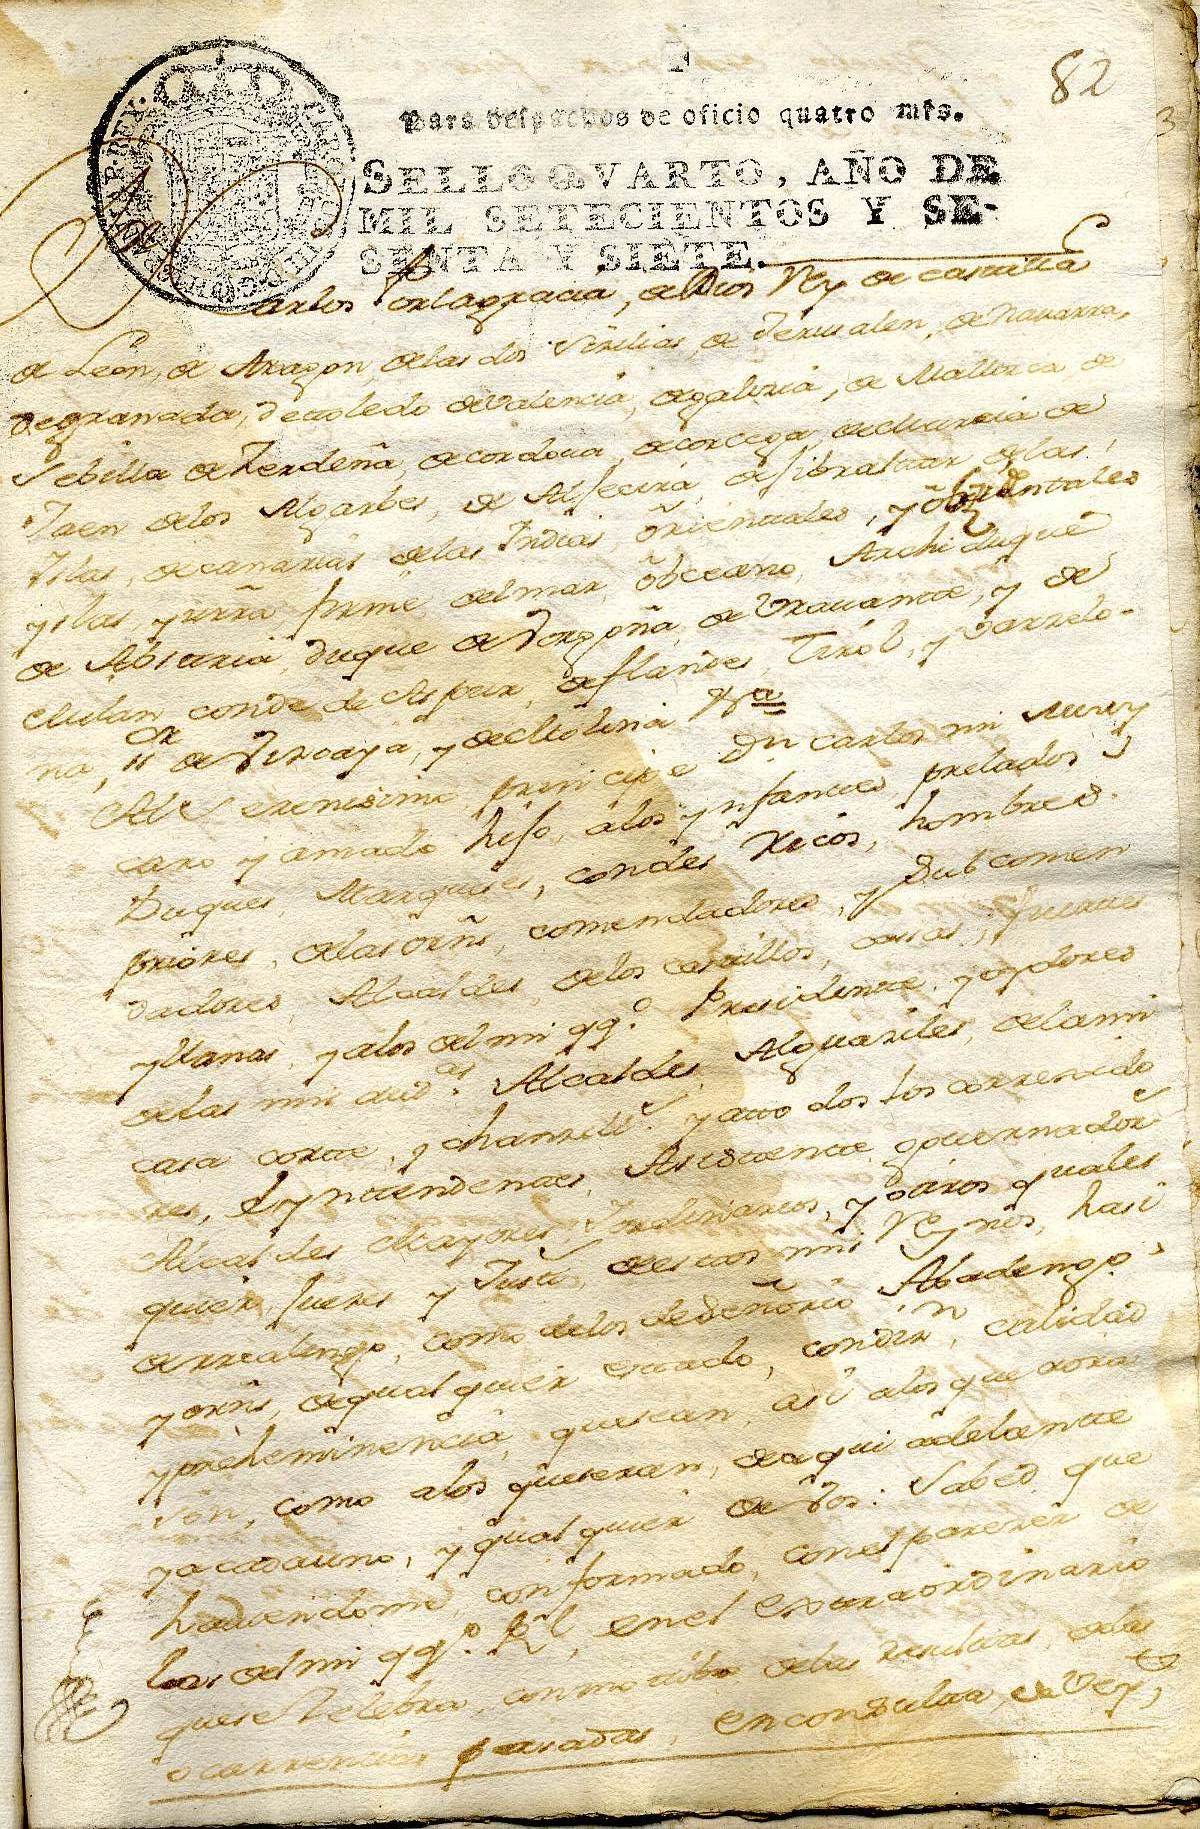 82
Para despachos de oficio quatro mrs.
SELLO QVARTO, AÑO DE
MIL SETECIENTOS Y SE-
SENTA Y SIETE.
Carlos Porlagracia, de Dios Rey de castilla
de Leon, de Aragon, delas dos Sicilias, de Jerusalen, de Navarra,
de granada, de toledo de valencia, de galicia, de Mallorca, de
Sebilla de Zerdeña, de cordova, de corcega, de Murcia de
Jaen delos Algarbes, de Alsecira, de Gibraltar delas
Yslas, de canarias delas Indias, orientales, y occidentales
yslas, y tierra firme del mar, occeano, Archiduque
de Abstria, duque de Borgoña, de Bravante, y de
Milan conde de Aspur, de flandes, Tirol, y Barzelo-
na, Sr de Vizcaya, y de Molina &a
Al Serenisimo principe Dn carlos mi muy
caro y amado hijo, alos ynfantes prelados
Duques, Marqueses, condes Ricos, hombres.
priores, delas orns, comendadores, y Subcomen
dadores, Alcaldes, delos castillos, casas, fuertes
y llanas, y alos del mi qqo. Presidente, y oydores
delas mis audas. Alcaldes, Alguaciles, dela mi
casa corte, y chanzills. y atodos los corregido
res, e yntendentes, Asistente, governador
Alcaldes Mayores, y ordinarios, y otros quales
quier Jueces y Justs, destos mis Reynos, hasi
de realengo, como delos de Señorio Abadengo
y orns, de qualquier estado, condizn, calidad
y preheminencia, quesean, asi alos que aora
son, como alos que seran, de aqui adelante
y a cada uno, y qualquier de Vos: Sabed, que
haviendome, conformado, conel parecer de
los del mi qqo. Rl, enel extraordinario
quese Zelebra, con motibo delas resultas, delas
ocurrencias pasadas, en consulta de Vey,